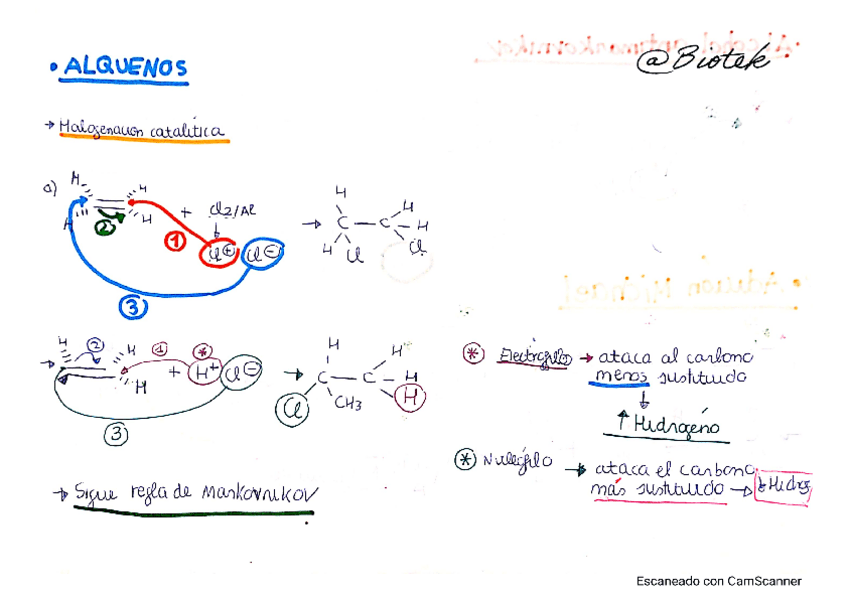 @Biotek
• ALQUENOS
→ Halogenación catalítica
a) H H H H + Cl2/Al → H H H H C — C Cl Cl
① ② ③ Cl⊕ Cl⊖
→ H H H + H+ Cl⊖ → H H H H C — C Cl CH3
① ② ③ *
* Electrófilo → ataca al carbono
menos sustituido
↓
↑ Hidrógeno
* Nuleófilo → ataca el carbono
más sustituido → ↓ Hidrg
→ Sigue regla de Markovnikov
Escaneado con CamScanner